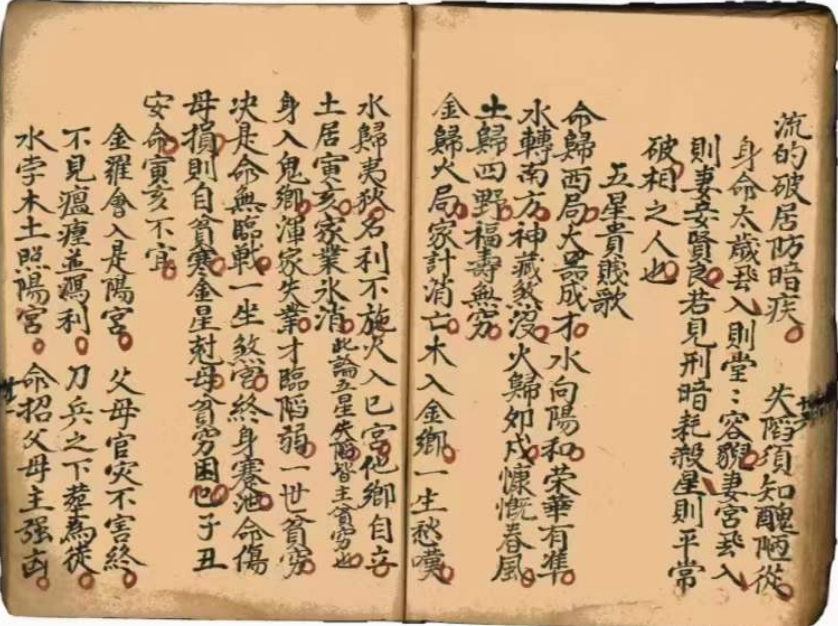 流的破居防暗疾 失陷須知醜陋從
身命太歲飛入則堂堂容貌妻宮飛入
則妻妾賢良若見刑暗耗殺星則平常
破相之人也
五星貴賤歌
命歸西局大器成才水向陽和荣華有準
水轉南方神藏煞沒火歸夘戍慷慨春風
土歸四野福壽無穷
金歸火局家計消亡木入金鄉一生愁嘆
水歸夷狄名利不施火入巳宮他鄉自立
土居寅亥家業氷消此論五星失陷皆主貧穷也
身入鬼鄉渾家失業才臨陷弱一世貧穷
决是命無臨戰一坐煞宮終身蹇滯命傷
母損則自貧寒金星尅母貧穷困也子丑
安命寅亥不宜
金羅會入是陽宮 父母官灾不害終
不見瘟瘽並瀉利 刀兵之下塟為徒
水孛木土照陽宮 命招父母主强凶